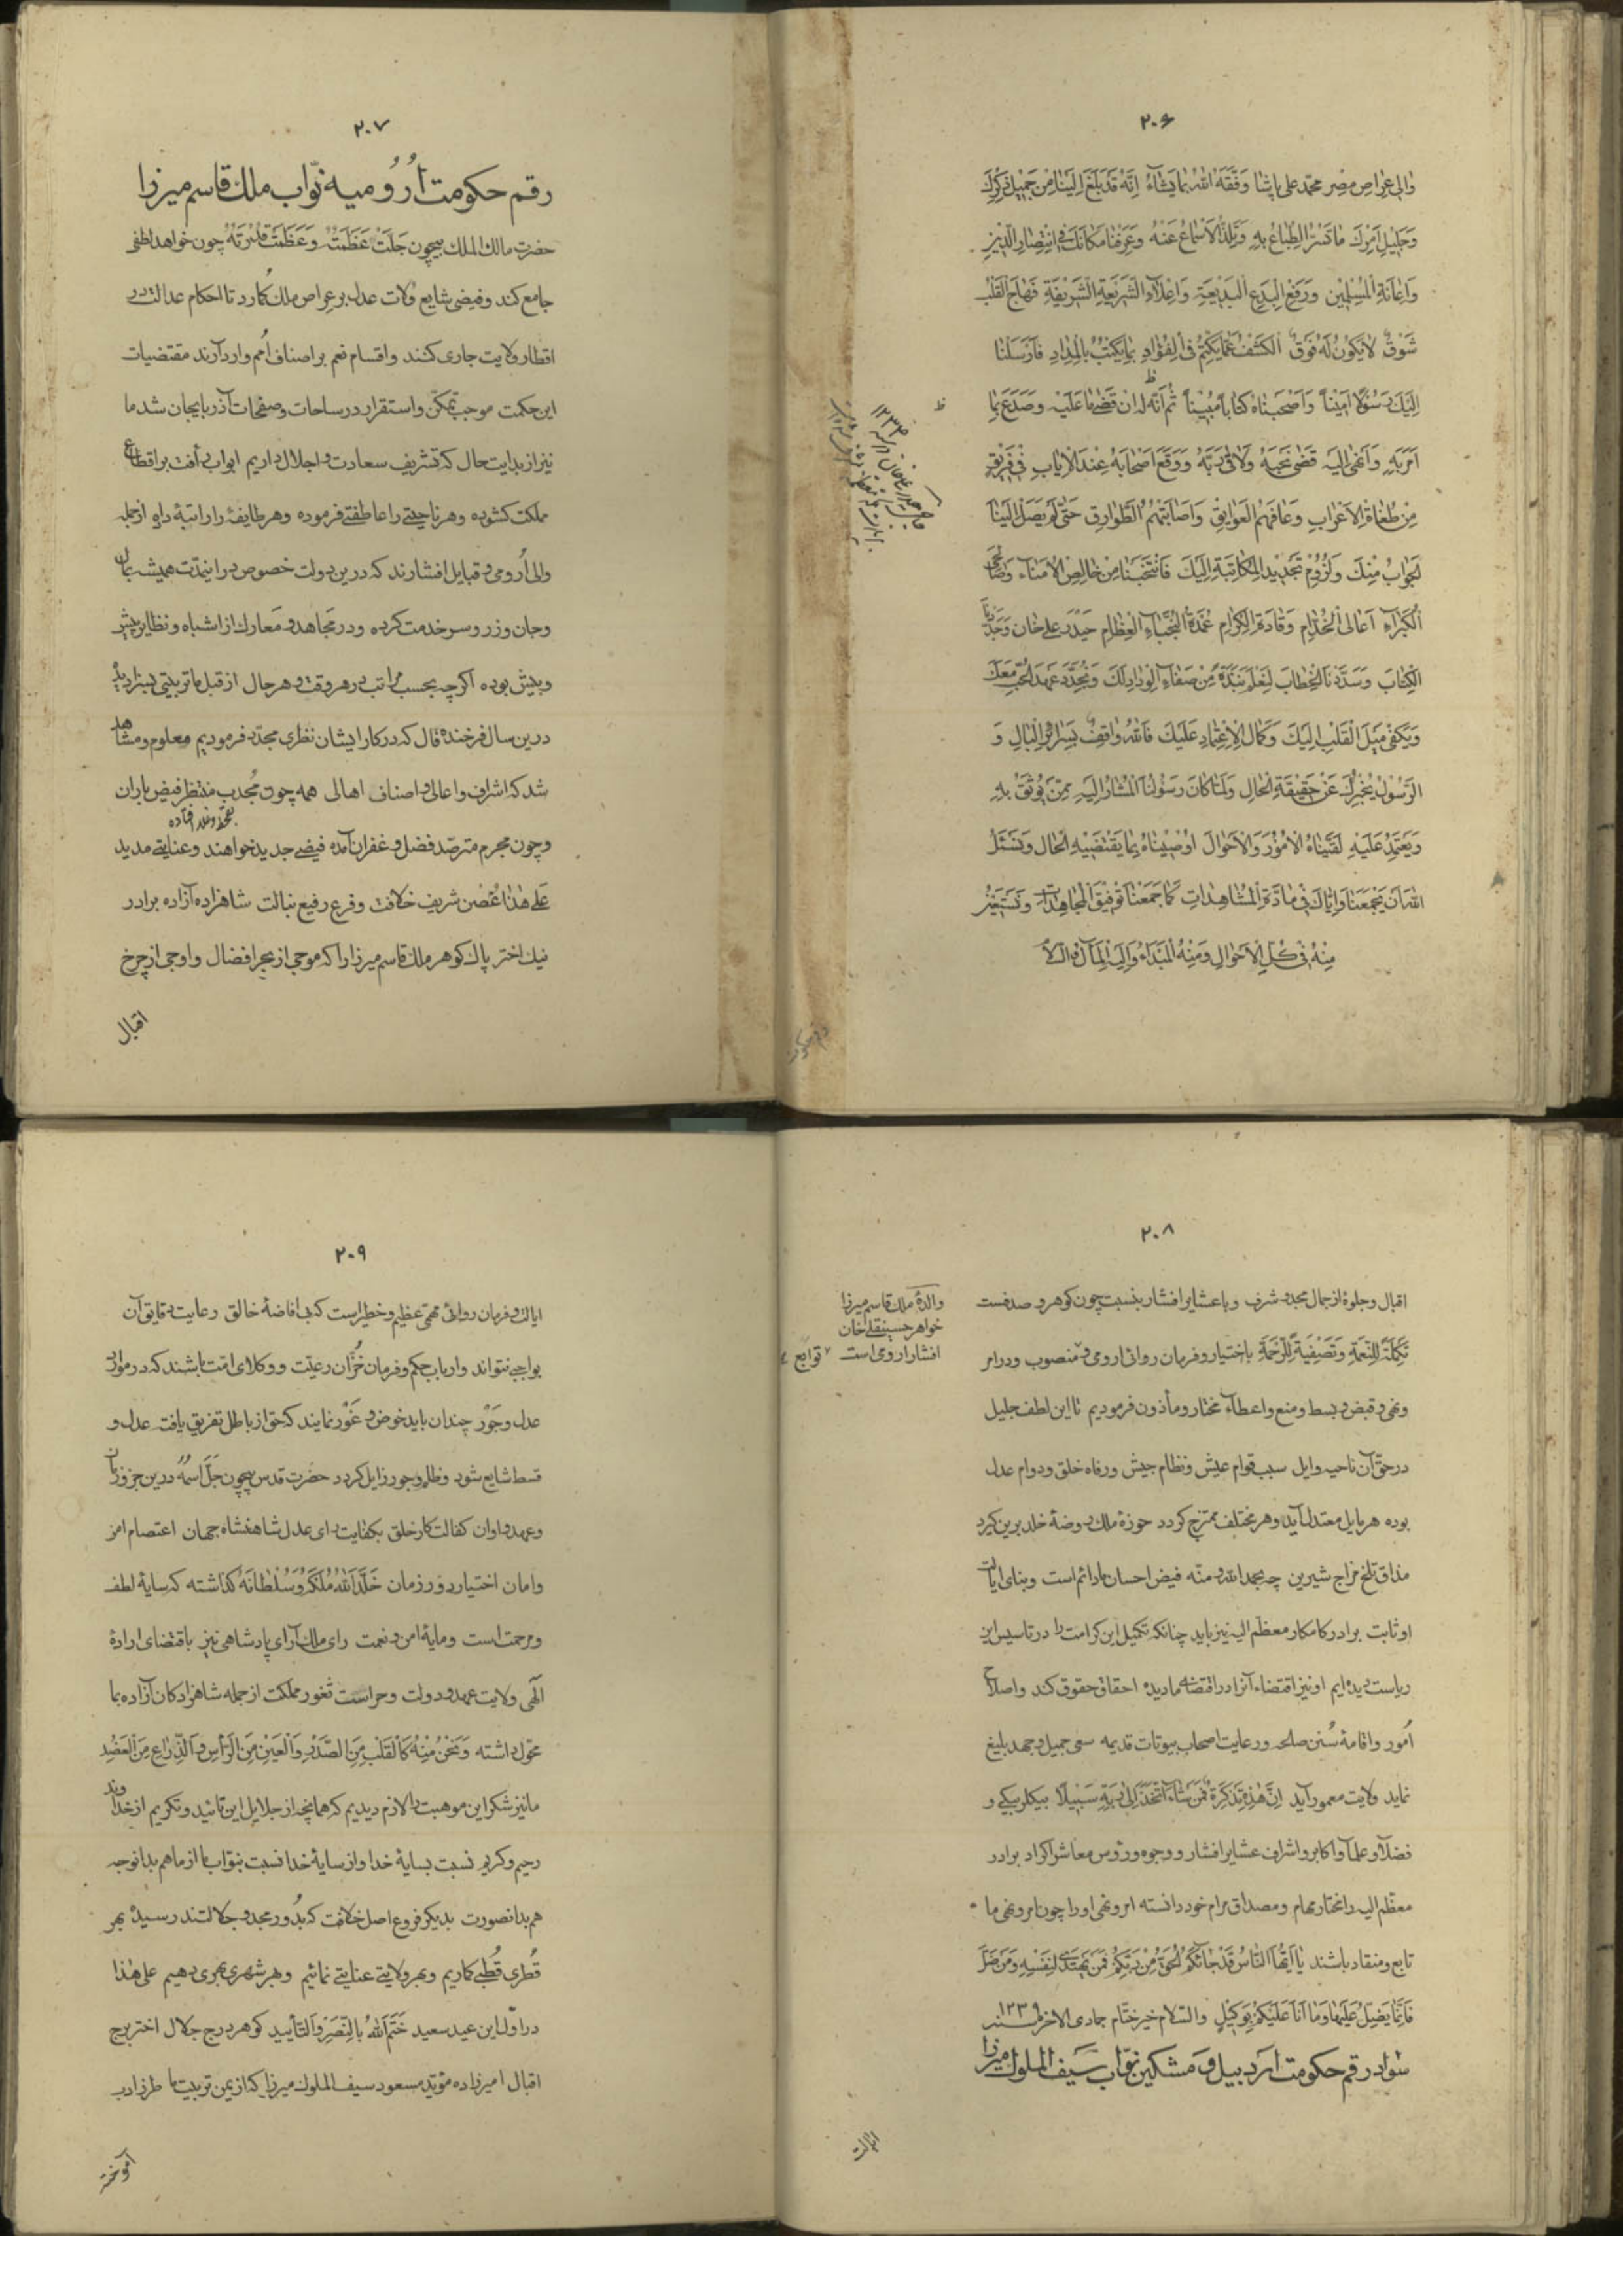 ۲۰۶
والی عراص مصر محمد علی پاشا وَفَّقَهُ اللهُ بِمَا یَشَاءُ اِنَّهُ قَدْ بَلَغَ اِلَیْنَا مِنْ جَمِیلِ ذِکْرِکَ
وَجَلِیلِ اَمْرِکَ مَا تَسُرُّ الطِّبَاعُ بِهِ وَتَلَذُّ الْاَسْمَاعُ عَنْهُ وَعَرَفْنَا مَکَانَکَ فِی انْتِصَارِ الدِّینِ
وَاِعَانَةِ الْمُسْلِمِینَ وَرَفْعِ الْبِدَعِ الْبَدِیعَةِ وَاِعْلَاءِ الشَّرِیعَةِ الشَّرِیفَةِ فَهَاجَ الْقَلْبُ
شَوْقٌ لَا یَکُونُ لَهُ فَوْقٌ اَلْکَشْفُ عَمَّا یُکْتَمُ فِی الْفُؤَادِ بِمَا یُکْتَبُ بِالْمِدَادِ فَاَرْسَلْنَا
اِلَیْکَ رَسُولًا اَمِینًا وَاَصْحَبْنَاهُ کِتَابًا مُبِینًا ثُمَّ اَنَّهُ لدان قَضَی مَا عَلَیْهِ وَصَدَعَ بِمَا
اُمِرَ بِهِ وَاُنْهِیَ اِلَیْهِ قَضَی نَحْبَهُ وَلَاقَی رَبَّهُ وَوَقَعَ اَصْحَابُهُ عِنْدَ الْاِیَابِ فِی فَرِیقٍ
مِنْ طُغَاةِ الْاَعْرَابِ وَعَاقَهُمُ الْعَوَایِقُ وَاَصَابَتْهُمُ الطَّوَارِقُ حَتَّی لَمْ یَصِلْ اِلَیْنَا
جَوَابٌ مِنْکَ وَلَزُوم تَجْدِید الْمُکَاتَبَةِ اِلَیْکَ فَانْتَخَبْنَا مِنْ خَالِصِ الْاُمَنَاءِ وَ
الْکُبَرَاءِ اَعَالِی الْخُدَّامِ وَقَادَةِ الْکِرَامِ عُمْدَةُ النُّجَبَاءِ الْعِظَامِ حَیْدَر علی خان وَجَدَّدْنَا
الْکِتَابَ وَسَدَّدْنَا الْخِطَابَ لِنُعَلِّمَ نَبْذَةً مِنْ صَفَاءِ الْوِدَادِ لَکَ وَنُجَدِّدَ عَهْدَ الْحُبِّ مَعَکَ
وَیَکْفِی مَیْلُ الْقَلْبِ اِلَیْکَ وَکَمَالُ الْاِعْتِمَادِ عَلَیْکَ فَاللهُ وَاقِفٌ بِسَرَائِرِ الْبَالِ وَ
الرَّسُولُ یُخْبِرُکَ عَنْ حَقِیقَةِ الْحَالِ وَلَمَّا کَانَ رَسُولُنَا الْمُشَارُ اِلَیْهِ مِمَّنْ یُوثَقُ بِهِ
وَیُعْتَمَدُ عَلَیْهِ لَقَّیْنَاهُ الْاُمُورَ وَالْاَحْوَالَ اَوْصَیْنَاهُ بِمَا یَقْتَضِیهِ الْحَالُ وَنَسْئَلُ
اللهَ اَنْ یَجْمَعَنَا وَاِیَّاکَ فِی مَادَّةِ الْمُشَاهِدَاتِ کَمَا جَمَعَنَا تَوْفِیقَ الْمُجَاهِدَاتِ وَنَسْتَخِیرُ
مِنْهُ فِی کُلِّ الْاَحْوَالِ وَمِنْهُ الْمَبْدَاءُ وَاِلَیْهِ الْمَآلُ
۱۲۳۳
۲۰۷
رقم حکومت اُرُومیه نوّاب ملک قاسم میرزا
حضرت مالک الملک بیچون جَلَّتْ عَظَمَتُهُ وَعَظُمَتْ قُدْرَتُهُ چون خواهد لطفی
جامع کند و فیضی شایع وُلات عدل بر عراص ملک گمارد تا احکام عدالت در
اقطار ولایت جاری کنند و اقسام نعم بر اصناف اُمم وارد آرند مقتضیات
این حکمت موجب تمکّن و استقرار در ساحات و صفحات آذربایجان شد ما
نیز از بدایت حال که تشریف سعادت و اجلال داریم ابواب رأفت بر اقطاع
مملکت گشوده و هر ناحیتی را عاطفتی فرموده و هر طایفه را راتبهٔ داد از جمله
والی اُرومی و قبایل افشارند که درین دولت خصوص در اینمدّت همیشه بمال
و جان و زر و سر خدمت کرده و در مجاهد و معارک از اشباه و نظایر بیشتر
و پیش بوده اگرچه بحسب مراتب در هر وقت و هر حال از قبل ما تربیتی بسزا دیده
درین سال فرخنده فال که در کار ایشان نظری مجدّد فرمودیم معلوم و مشاهد
شد که اشراف و اعالی و اصناف اهالی همه چون مُجدب منتظر فیض باران
بقحط و غلا افتاده
و چون مجرم مترصّد فضل و غفران آمده فیضی جدید خواهند و عنایتی مدید
عَلی هٰذَا غُصن شریف خلافت و فرع رفیع نبالت شاهزاده آزاده برادر
نیک اختر پاک گوهر ملک قاسم میرزا را که موجی از بحر افضال و اوجی از چرخ
اقبال
۲۰۸
اقبال و جلوهٔ از جمال مجد و شرف و با عشایر افشار بنسبت چون گوهر و صدفست
والدهٔ ملک قاسم میرزا
خواهر حسینقلی خان
افشار ارومی است
توابع
تَکْمِلَةً لِلنِّعْمَةِ وَتَصْفِیَةً لِلرَّحْمَةِ باختیار و فرمان روائی ارومی و منصوب و در امر
و نهی و قبض و بسط و منع و اعطاء مختار و مأذون فرمودیم تا این لطف جلیل
در حقّ آن ناحیه و ایل سبب قوام عیش و نظام جیش و رفاه خلق و دوام عدل
بوده هر مایل معتدل آید و هر مختلف ممتزج گردد حوزهٔ ملک روضهٔ خلد برین گیرد
مذاق تلخ مزاج شیرین چه بحمد الله و منّه فیض احسان ما دائم است و بنای ایالت
او ثابت برادر کامکار معظّم الیه نیز باید چنانکه تکمیل این کرامت را در تاسیس این
ریاست دیده‌ایم او نیز اقتضاء آنرا در اقتضای ما دیده احقاق حقوق کند و اصلاح
اُمور و اقامهٔ سُنن صلحه و رعایت اصحاب بیوتات قدیمه سعی جمیل و جهد بلیغ
نماید ولایت معمور آید اِنَّ هٰذِهِ تَذْکِرَةٌ فَمَنْ شَاءَ اتَّخَذَ اِلَی رَبِّهِ سَبِیلًا بیگلربیگی و
فضلا و علما و اکابر و اشراف عشایر افشار و وجوه و رؤس معاشر اکراد برادر
معظّم الیه را مختار مهام و مصداق مرام خود دانسته امر و نهی او را چون امر و نهی ما
تابع و منقاد باشند یَا اَیُّهَا النَّاسُ قَدْ جَائَکُمُ الْحَقُّ مِنْ رَبِّکُمْ فَمَنْ یَهْتَدِی لِنَفْسِهِ وَمَنْ ضَلَّ
فَاِنَّمَا یَضِلُّ عَلَیْهَا وَمَا اَنَا عَلَیْکُمْ بِوَکِیلٍ والسّلام خیر ختام جمادی الاخر سنه ۱۲۳۹
سواد رقم حکومت اردبیل و مشکین نوّاب سَیف الملوک میرزا
ایالت
۲۰۹
ایالت و فرمان روائی مهمّی عظیم و خطیر است که بی افاضهٔ خالق رعایت دقایق آن
بواجبی نتواند و ارباب حکم و فرمان خُزّان رعیّت و وکلای امّت باشند که در موارد
عدل و جَوْر چندان باید خوض و غَوْر نمایند که حق از باطل تفریق یافت عدل و
قسط شایع شود و ظلم و جور زایل گردد حضرت قدس بیچون جَلَّ اسْمُهُ درین جزو زمان
و عهد و اوان کفالت کار خلق بکفایت رای عدل شاهنشاه جهان اعتصام امن
و امان اختیار دور زمان خَلَّدَ اللهُ مُلْکَهُ وَسُلْطَانَهُ گذاشته که سایهٔ لطف
و مرحمت است و مایهٔ امن و نعمت رای ملک آرای پادشاهی نیز باقتضای ارادهٔ
الٓهی ولایت عهد و دولت و حراست ثغور مملکت از جمله شاهزادگان آزاده بما
محوّل داشته وَنَحْنُ مِنْهُ کَالْقَلْبِ مِنَ الصَّدْرِ وَالْعَیْنِ مِنَ الرَّأْسِ وَالذِّرَاعِ مِنَ الْعَضُدِ
ما نیز شکر این موهبت را لازم دیدیم که همانچه از جلایل این تائید و تکریم از خداوند
رحیم و کریم نسبت بسایهٔ خدا و از سایهٔ خدا نسبت بنوّاب ما از ما هم بدانوجه
هم بدانصورت بدیگر فروع اصل خلافت که بُدور مجد و جلالتند رسیده بهر
قُطری قُطبی گماریم و بهر ولایتی عنایتی نمائیم و بهر شهری بهری دهیم علی هٰذا
در اوّل این عید سعید خَتَمَ اللهُ بِالنَّصْرِ وَالتَّأْیید گوهر درج جلال اختر برج
اقبال امیرزاده مؤیّد مسعود سیف الملوک میرزا که از یمن تربیت ما طرز ادب
آموخته